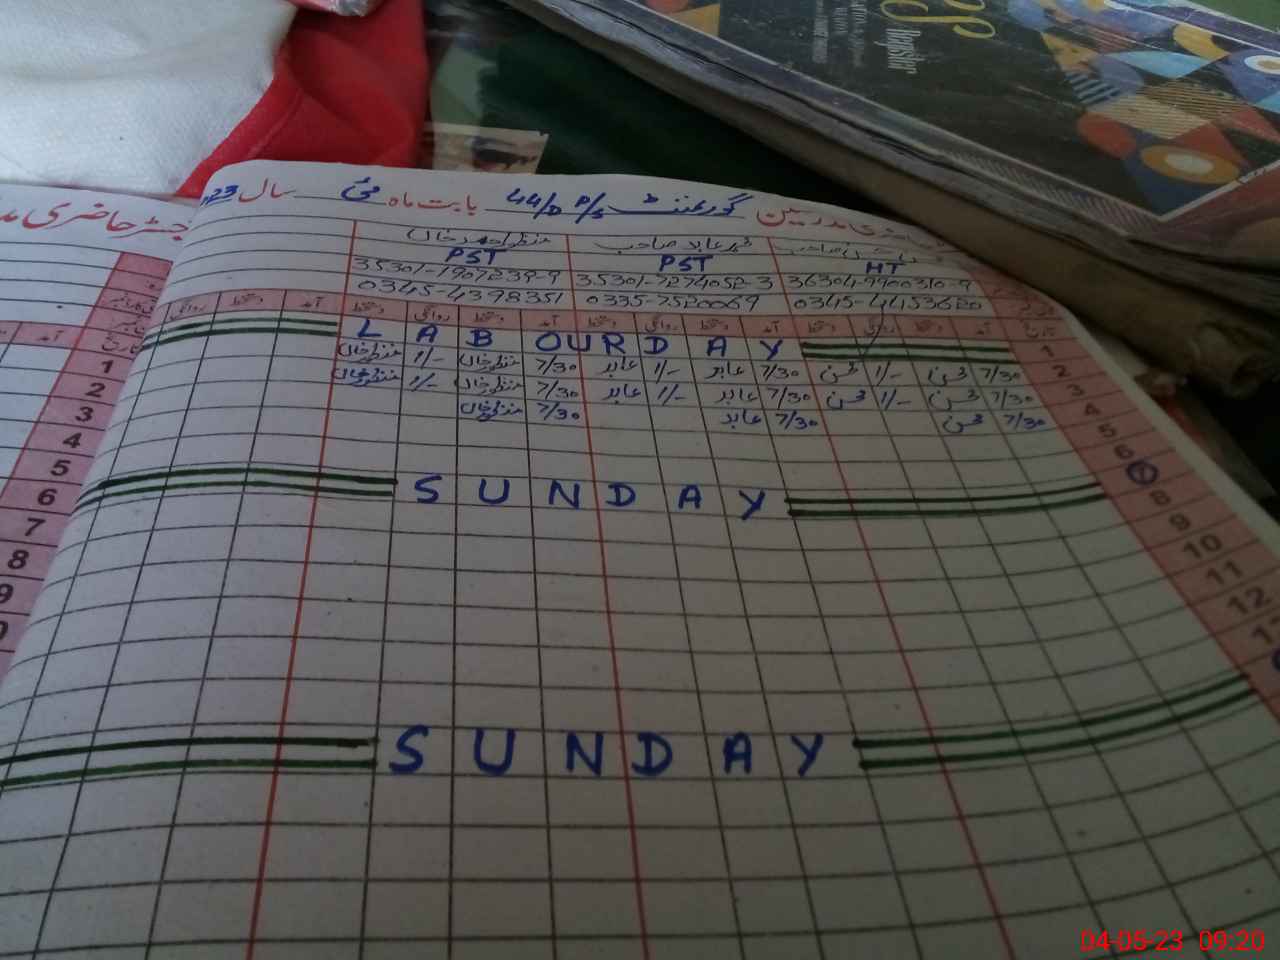 Register
جسٹر حاضری
حاضری مدرسین گورنمنٹ 44/D P/S بابت ماہ مئی سال 23
محمد عابد صاحب منظور احمد خاں
HT PST PST
36304-9900310-9 35301-7274052-3 35301-1907239-9
0345-4453620 0335-7520069 0345-4398351
تاریخ آمد دستخط روانگی دستخط آمد دستخط روانگی دستخط آمد دستخط روانگی دستخط آمد دستخط روانگی
1 LABOUR DAY
2 7/30 محسن 1/- محسن 7/30 عابد 1/- عابد 7/30 منظور خاں 1/- منظور خاں
3 7/30 محسن 1/- محسن 7/30 عابد 1/- عابد 7/30 منظور خاں 1/- منظور خاں
4 7/30 محسن 7/30 عابد 7/30 منظور خاں
5
6
7 SUNDAY
8
9
10
11
12
SUNDAY
تاریخ
آمد
1
2
3
4
5
6
7
8
9
04-05-23 09:20